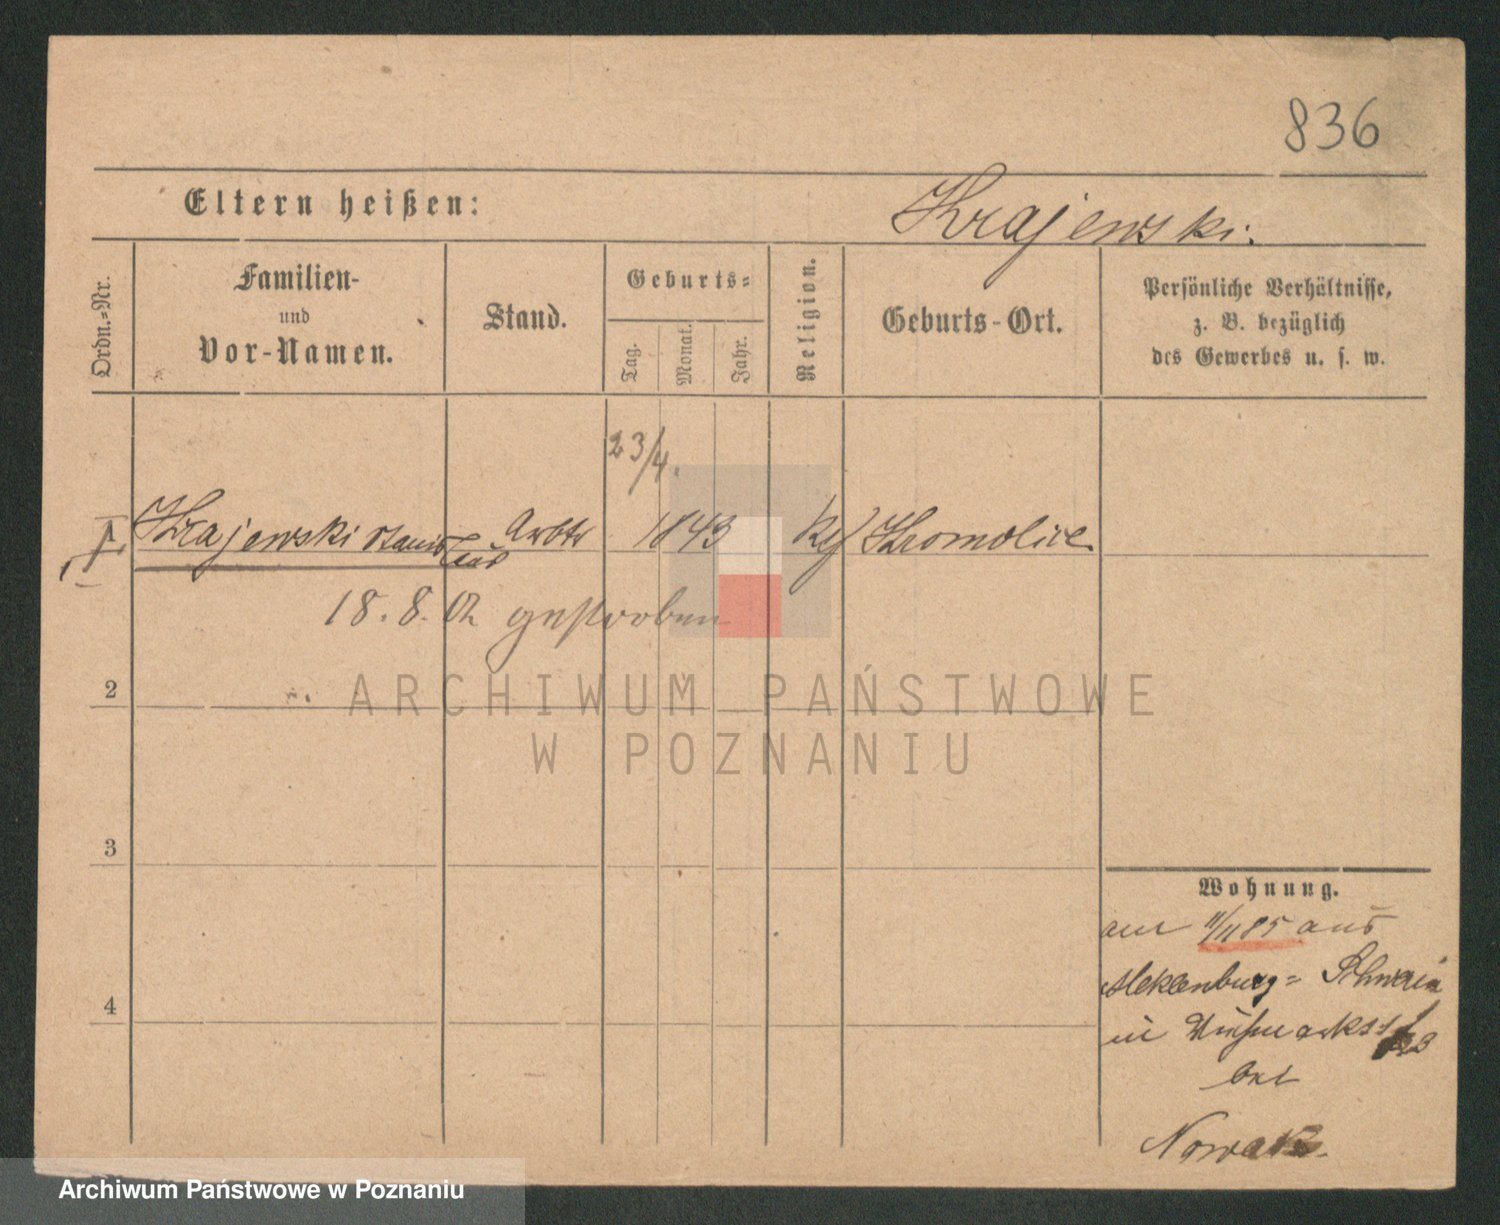 836
Eltern heißen:
Krajewski.
Ordn.-Nr.
Familien-
und
Vor-Namen.
Stand.
Geburts-
Tag.
Monat.
Jahr.
Religion.
Geburts-Ort.
Persönliche Verhältnisse,
z. B. bezüglich
des Gewerbes u. s. w.
23/4.
1 Krajewski Stanislaus Arbtr 1843 Kromolice
18.8.02 gestorben
2
ARCHIWUM PAŃSTWOWE
W POZNANIU
3
4
Wohnung.
am 11/11 85 aus
Meklenburg-Schwerin
in
bei
Nowak.
Archiwum Państwowe w Poznaniu